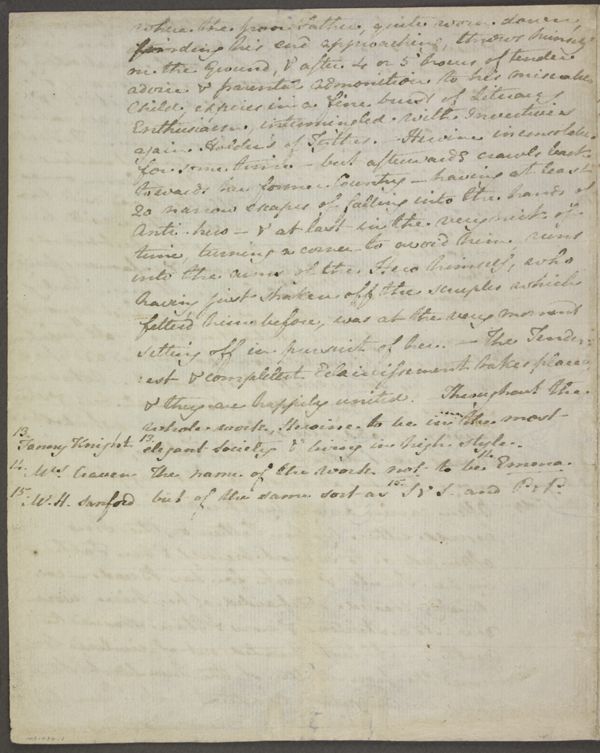 where the poor Father, quite worn down,
finding his end approaching, throws himself
on the Ground, & after 4 or 5 hours of tender
advice & parental admonition to his miserable
Child, expires in a fine burst of Literary
Enthusiasm, intermingled with Invectives
again Holder's of Tithes. - Heroine inconsolable
for some time - but afterwards crawls back
towards her former Country - having at least
20 narrow escapes of falling into the hands of
Anti-hero - & at last in the very nick of
time, turning a corner to avoid him, runs
into the arms of the Hero himself, who
having just shaken off the scruples which
fetter'd him before, was at the very moment
setting off in pursuit of her. - The Tender-
:est & completest Eclaircissement takes place,
& they are happily united. Throughout the
whole work, Heroine to be in the most
13. Fanny Knight 13. elegant Society & living in high style.
14. Mrs Craven The name of the work not to be 14. Emma.
15. W.H. Sanford but of the same sort as 15. S & S. and P & P.